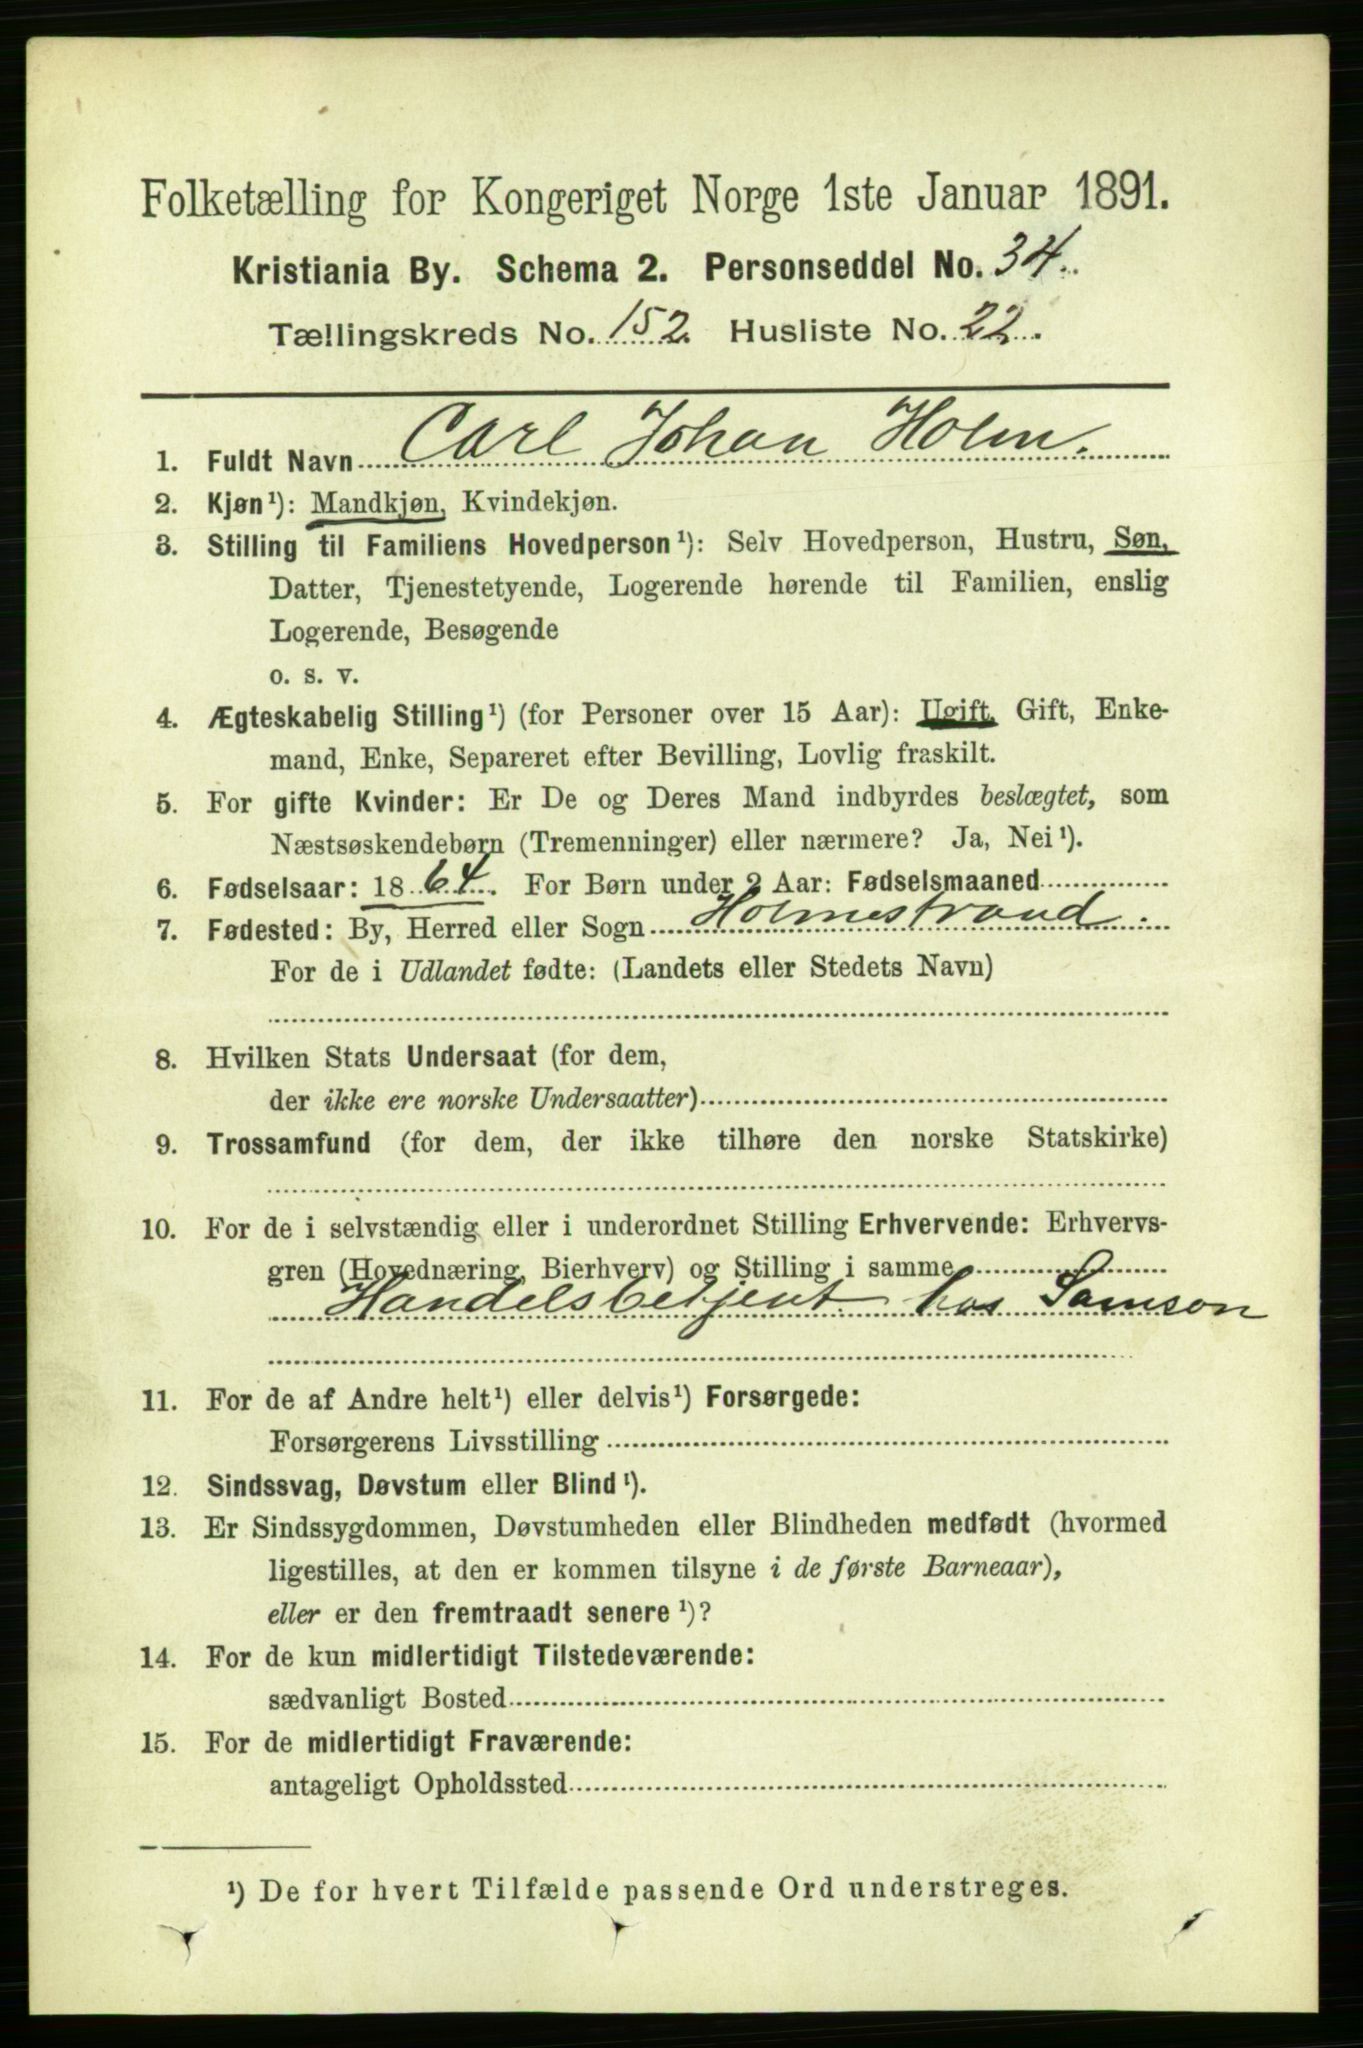 Folketælling for Kongeriget Norge 1ste Januar 1891.
Kristiania By. Schema 2. Personseddel No. 34.
Tællingskreds No. 152. Husliste No. 22.
1. Fuldt Navn Carl Johan Holm.
2. Kjøn¹): Mandkjøn, Kvindekjøn.
3. Stilling til Familiens Hovedperson¹): Selv Hovedperson, Hustru, Søn,
Datter, Tjenestetyende, Logerende hørende til Familien, enslig
Logerende, Besøgende
o. s. v.
4. Ægteskabelig Stilling¹) (for Personer over 15 Aar): Ugift, Gift, Enke-
mand, Enke, Separeret efter Bevilling, Lovlig fraskilt.
5. For gifte Kvinder: Er De og Deres Mand indbyrdes beslægtet, som
Næstsøskendebørn (Tremenninger) eller nærmere? Ja, Nei¹).
6. Fødselsaar: 1864. For Børn under 2 Aar: Fødselsmaaned
7. Fødested: By, Herred eller Sogn Holmestrand.
For de i Udlandet fødte: (Landets eller Stedets Navn)
8. Hvilken Stats Undersaat (for dem,
der ikke ere norske Undersaatter)
9. Trossamfund (for dem, der ikke tilhøre den norske Statskirke)
10. For de i selvstændig eller i underordnet Stilling Erhvervende: Erhvervs-
gren (Hovednæring, Bierhverv) og Stilling i samme
Handelsbetjent hos Samson
11. For de af Andre helt¹) eller delvis¹) Forsørgede:
Forsørgerens Livsstilling
12. Sindssvag, Døvstum eller Blind¹).
13. Er Sindssygdommen, Døvstumheden eller Blindheden medfødt (hvormed
ligestilles, at den er kommen tilsyne i de første Barneaar),
eller er den fremtraadt senere¹)?
14. For de kun midlertidigt Tilstedeværende:
sædvanligt Bosted
15. For de midlertidigt Fraværende:
antageligt Opholdssted
¹) De for hvert Tilfælde passende Ord understreges.